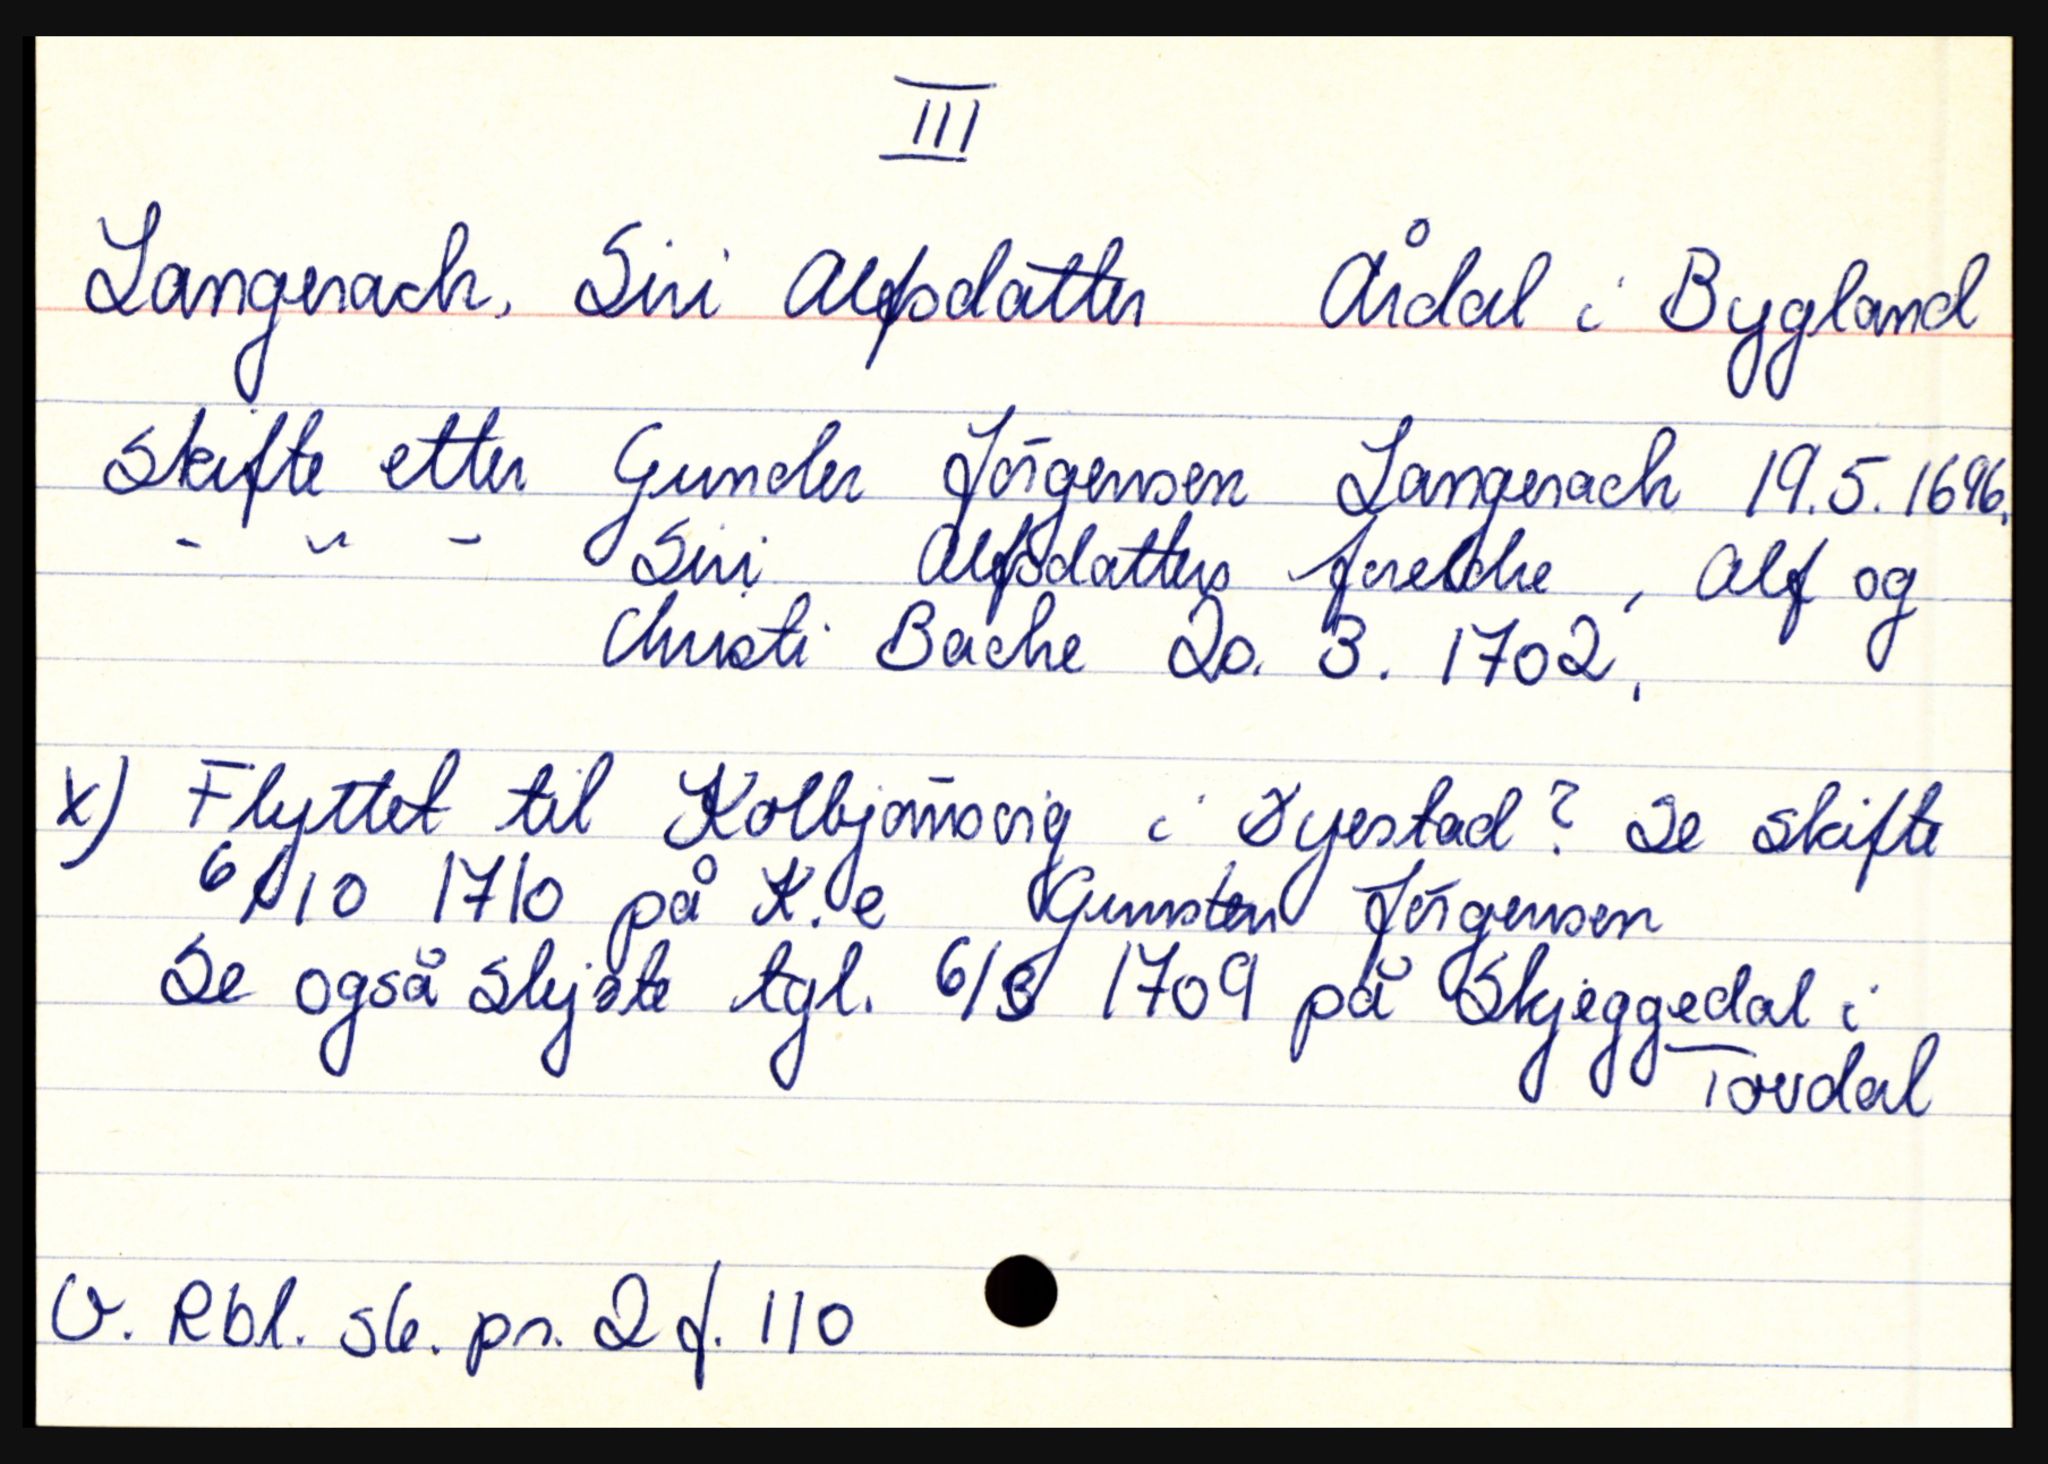 III
Langerach, Siri Alfsdatter Årdal i Bygland
Skifte etter Gunder Jörgensen Langerach 19.5.1696.
- " - Siri Alfsdatters foreldre, Alf og
Christi Bache 20. 3. 1702.
x) Flyttet til Kolbjörnsvig i Øyestad? Se skifte
6/10 1710 på K. e Gunsten Jörgensen
Se også skjöte tgl. 6/3 1709 på Skjeggedal i
Tovdal
V. Rbl. sk. pr. 2 f. 110